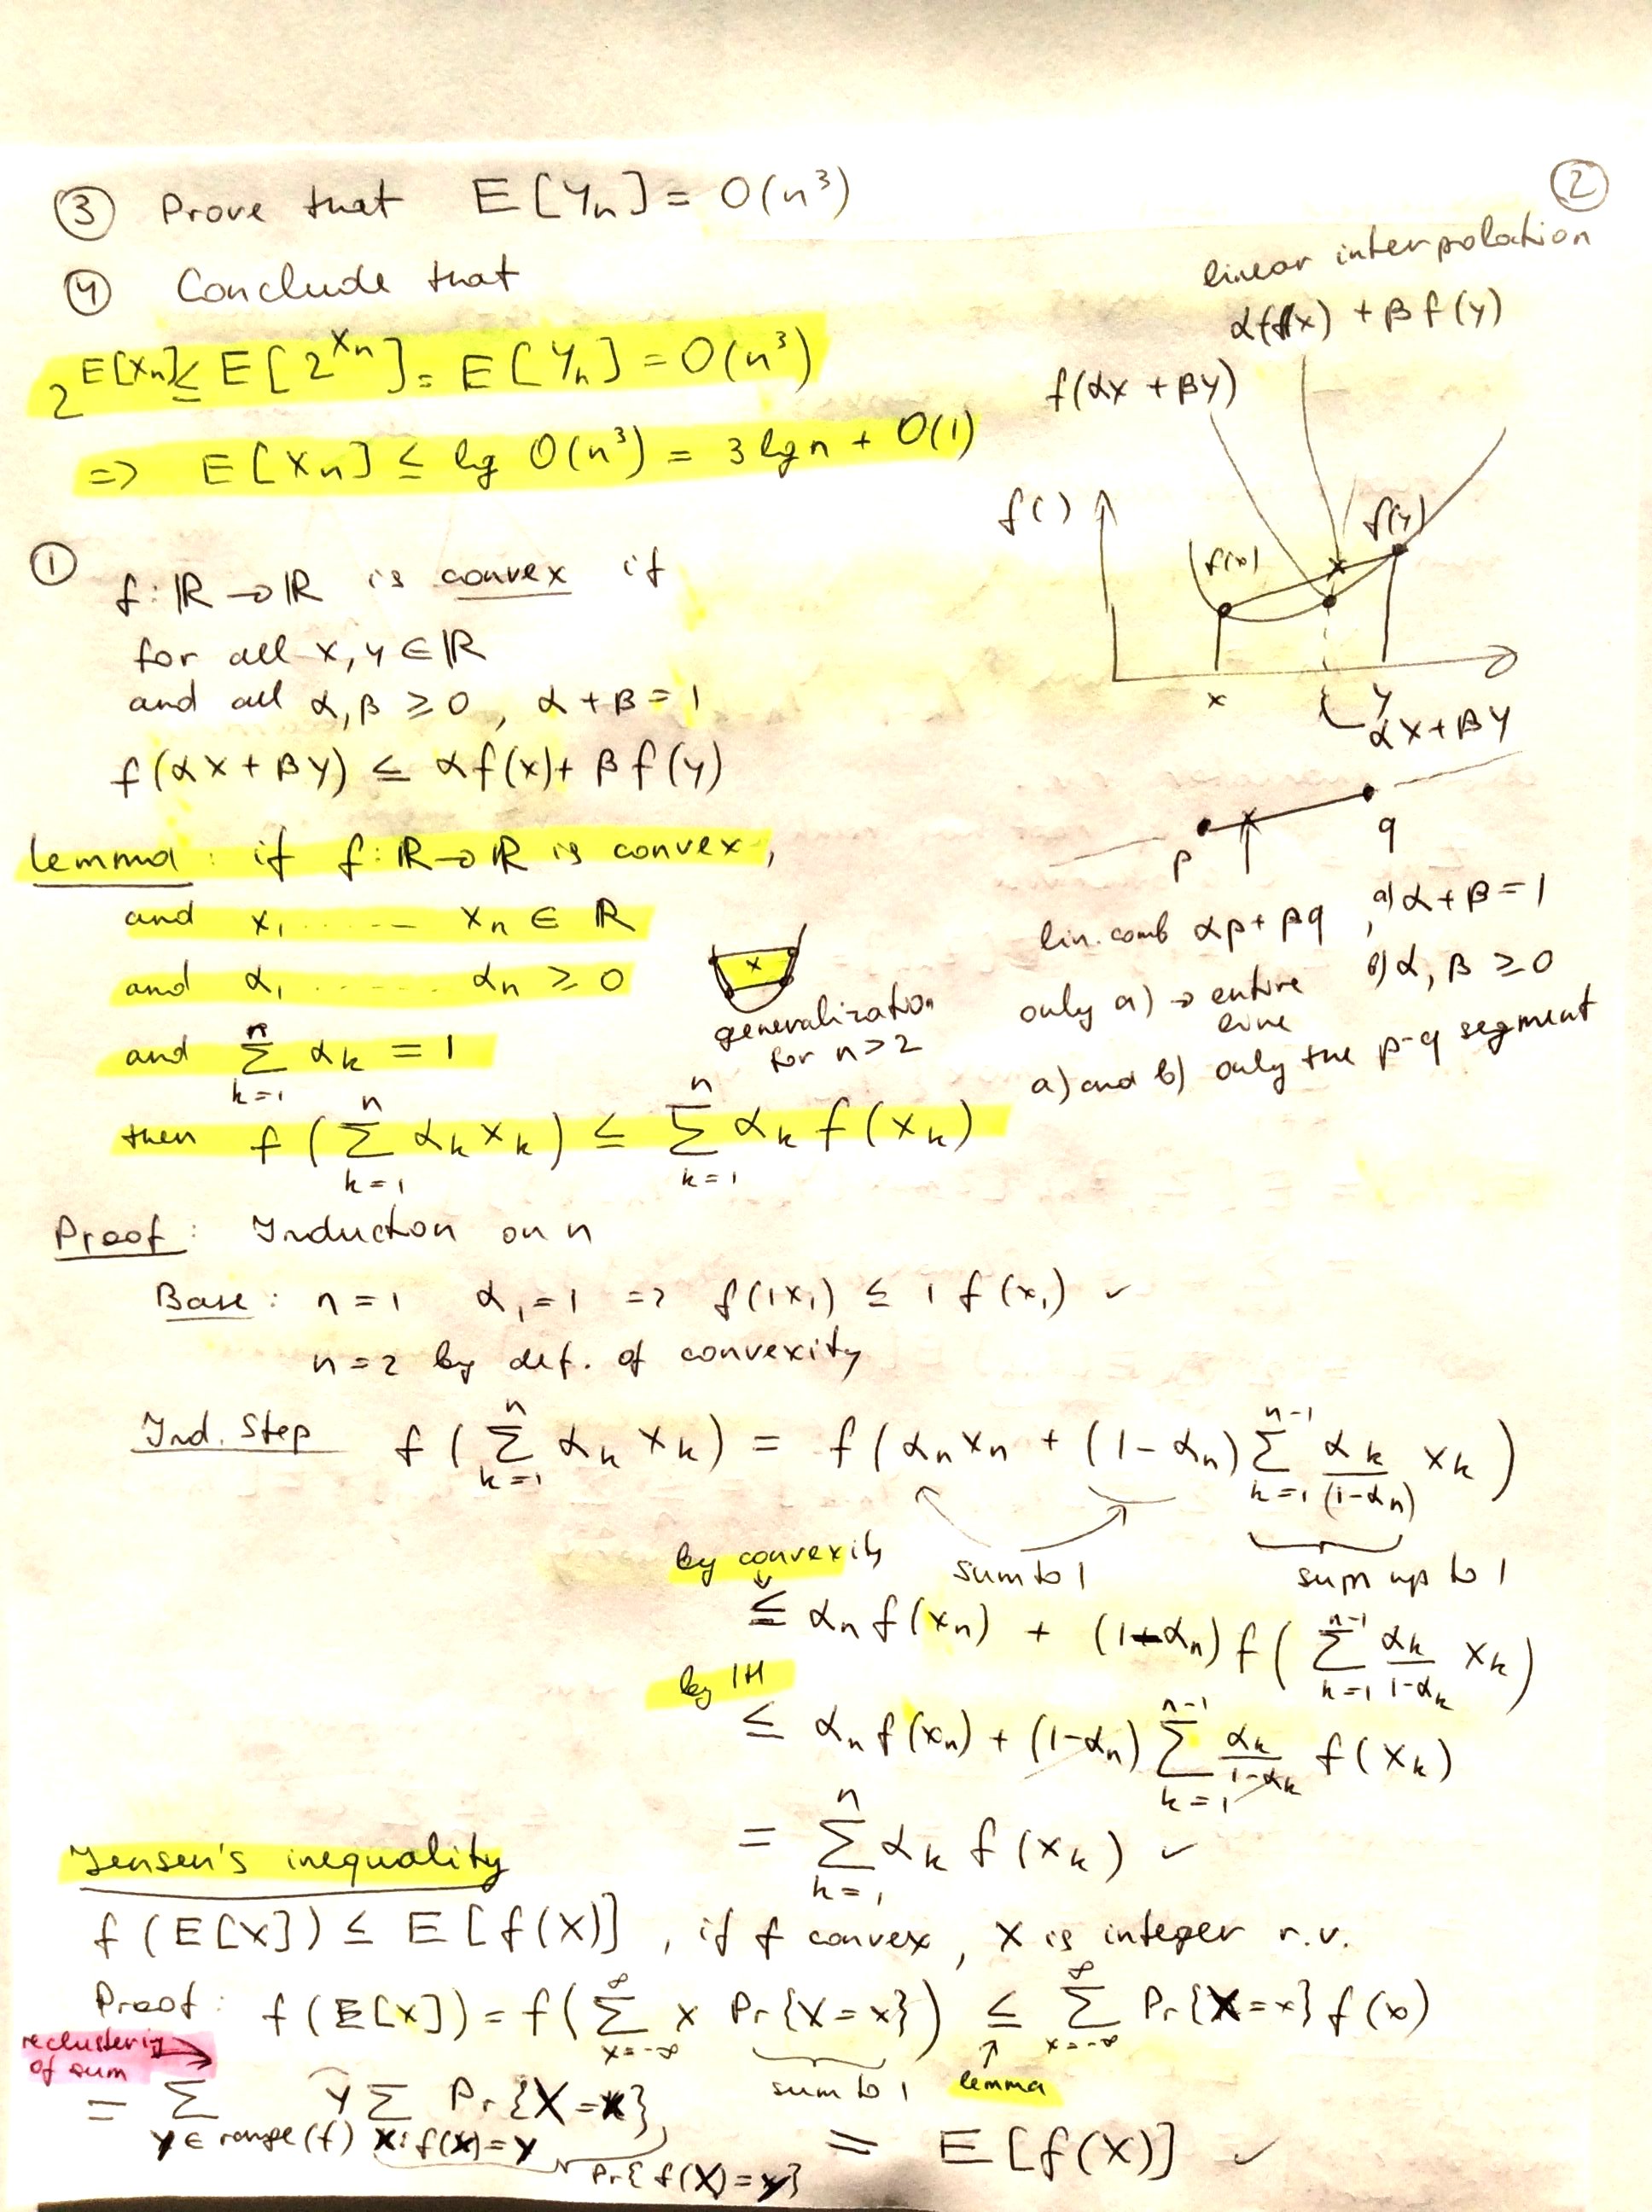 ②
③ Prove that E[Yn] = O(n³)
④ Conclude that
2^E[Xn] ≤ E[2^Xn] = E[Yn] = O(n³)
=> E[Xn] ≤ lg O(n³) = 3 lg n + O(1)
linear interpolation
αf(x) + βf(y)
f(αx + βy)
f()
f(x)
f(y)
x
y
αx+βy
① f: ℝ → ℝ is convex if
for all x, y ∈ ℝ
and all α, β ≥ 0, α + β = 1
f(αx + βy) ≤ αf(x) + βf(y)
p
q
lin. comb αp + βq, a) α + β = 1
b) α, β ≥ 0
only a) → entire
line
a) and b) only the p-q segment
Lemma: if f: ℝ → ℝ is convex,
and x₁ ..... xn ∈ ℝ
and α₁ ...... αn ≥ 0
and Σ_{k=1}^{n} αk = 1
then f(Σ_{k=1}^{n} αk xk) ≤ Σ_{k=1}^{n} αk f(xk)
x
generalization
for n>2
Proof: Induction on n
Base: n = 1 α₁ = 1 => f(1x₁) ≤ 1 f(x₁) ✓
n = 2 by def. of convexity
Ind. Step f(Σ_{k=1}^{n} αk xk) = f(αn xn + (1-αn) Σ_{k=1}^{n-1} αk/(1-αn) xk)
sum to 1
sum up to 1
by convexity
≤ αn f(xn) + (1-αn) f(Σ_{k=1}^{n-1} αk/(1-αk) xk)
by IH
≤ αn f(xn) + (1-αn) Σ_{k=1}^{n-1} αk/(1-αk) f(xk)
= Σ_{k=1}^{n} αk f(xk) ✓
Jensen's inequality
f(E[X]) ≤ E[f(X)], if f convex, X is integer r.v.
Proof: f(E[X]) = f(Σ_{x=-∞}^{∞} x Pr{X=x}) ≤ Σ_{x=-∞}^{∞} Pr{X=x} f(x)
sum to 1
↑
lemma
reclustering
of sum
= Σ_{y ∈ range(f)} y Σ_{x: f(x)=y} Pr{X=x} = E[f(X)] ✓
Pr{f(X)=y}